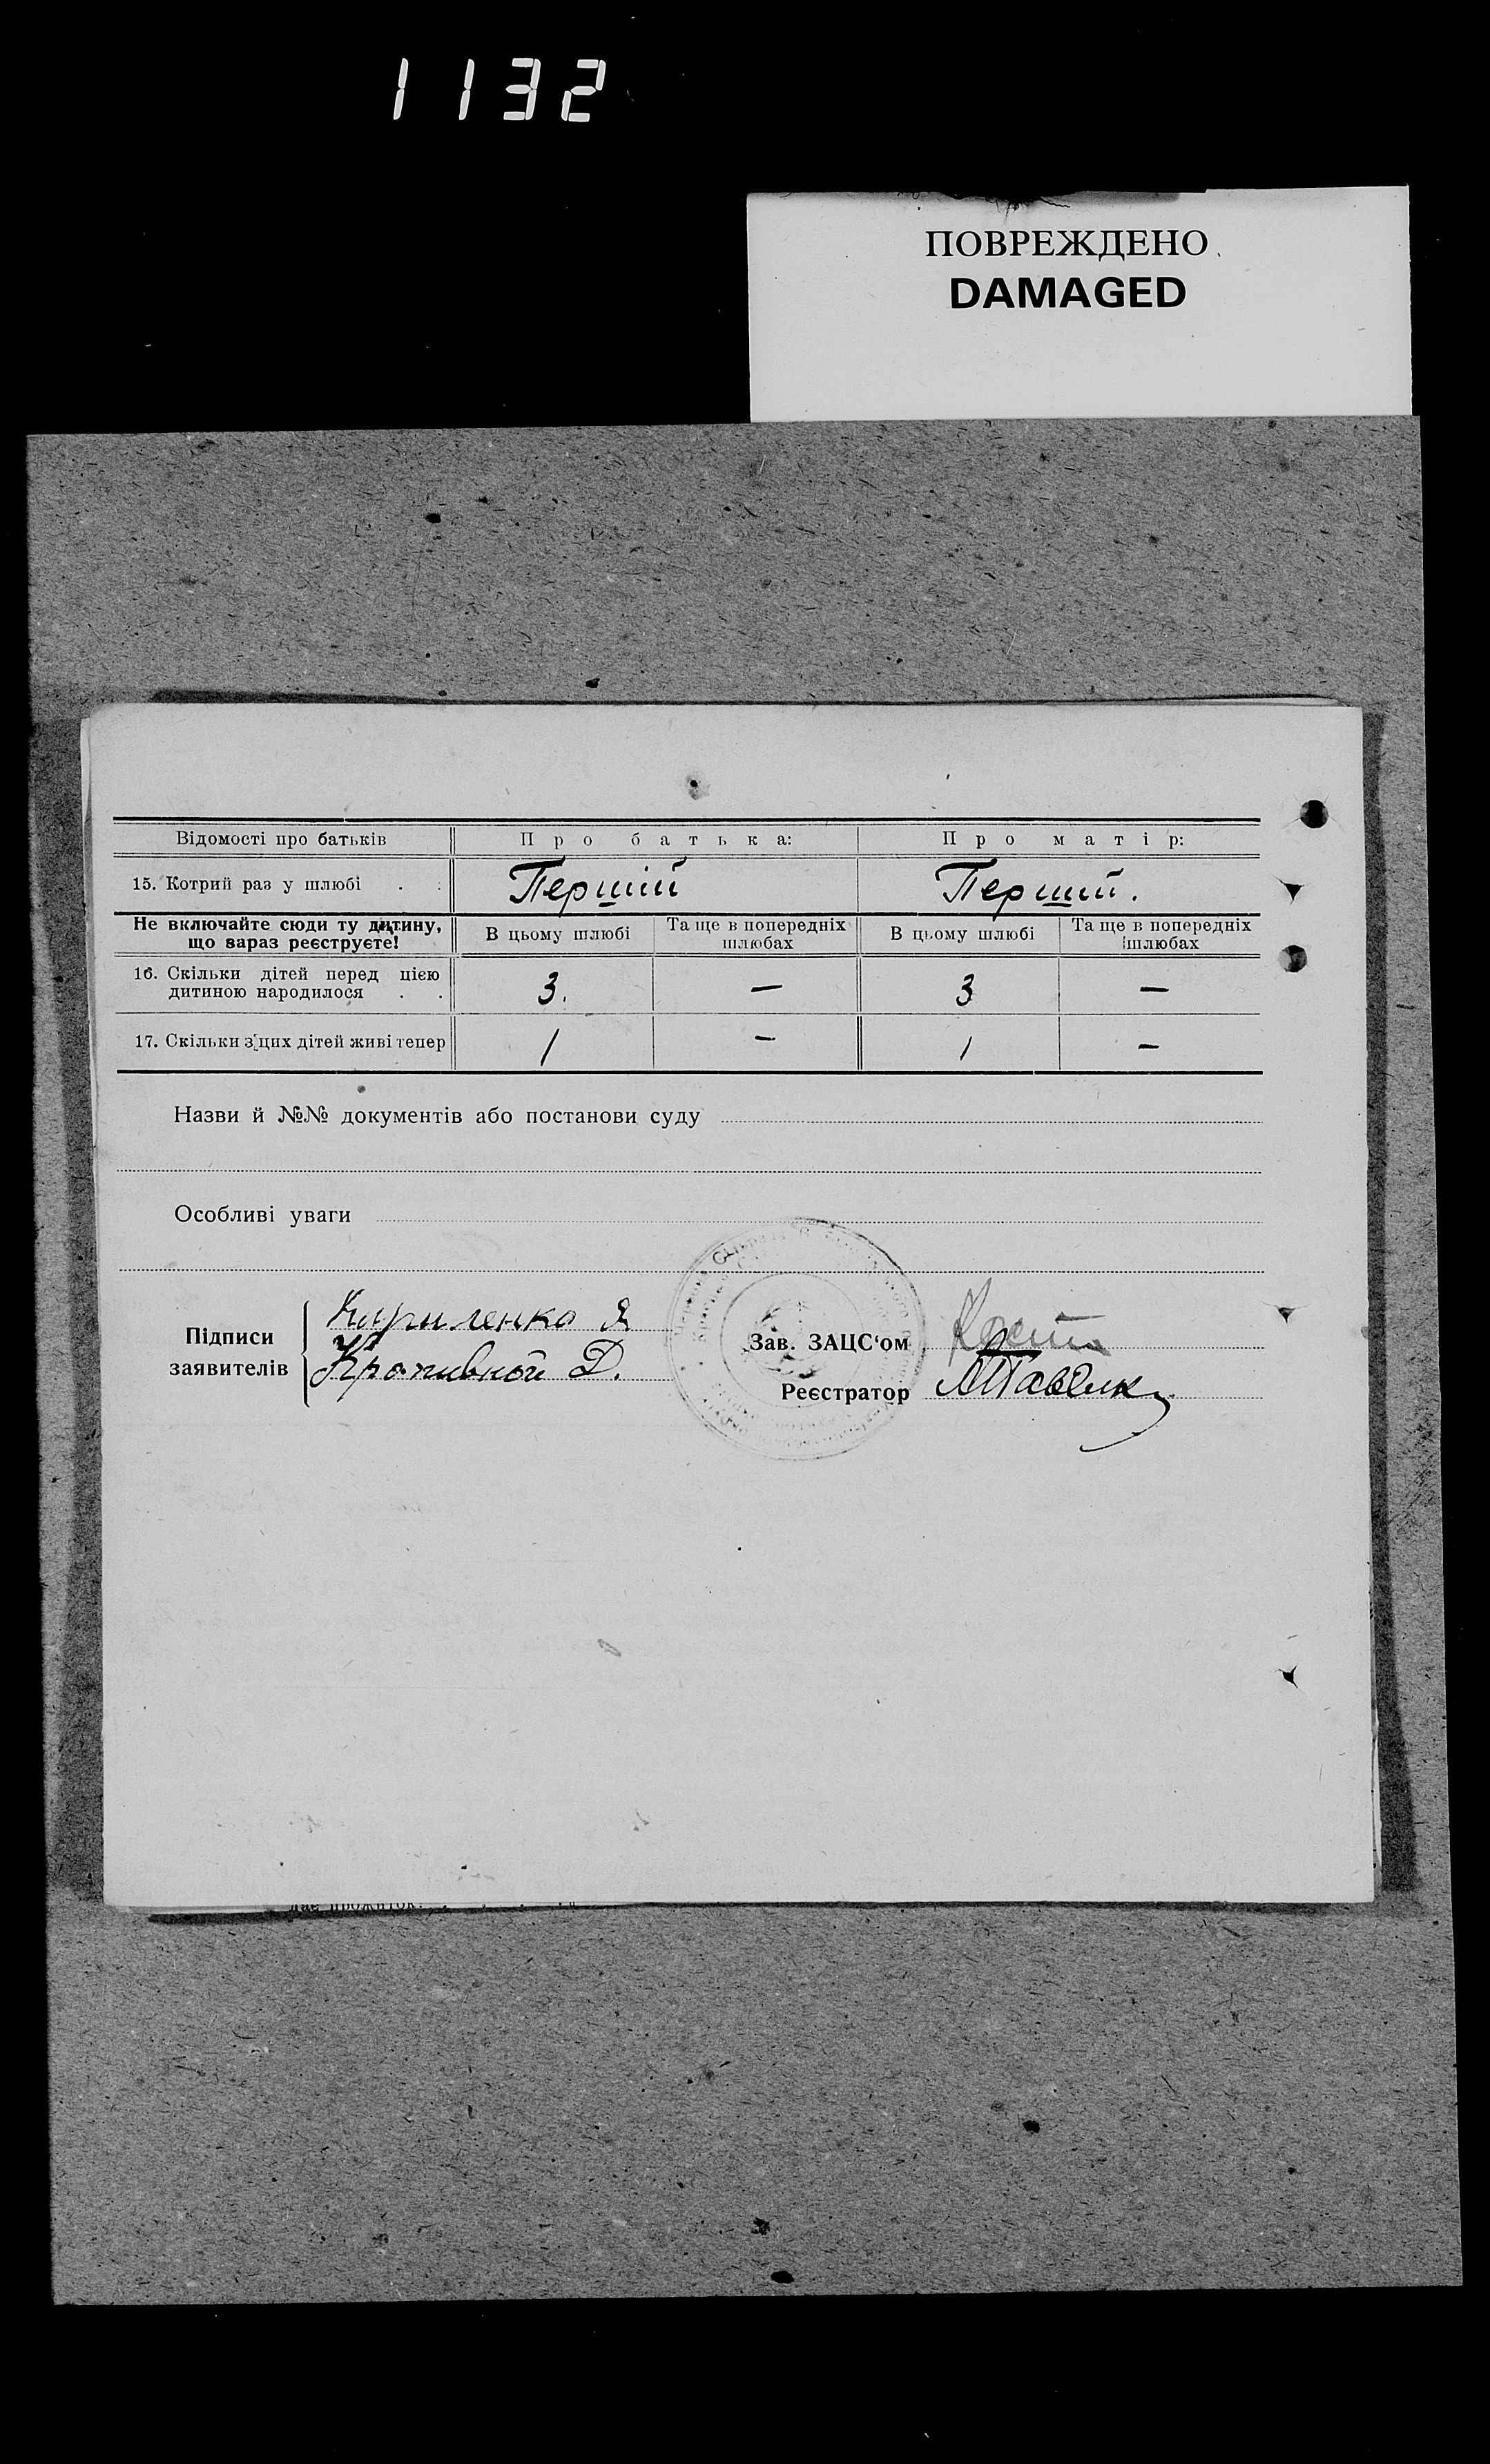 1132
ПОВРЕЖДЕНО
DAMAGED
Відомості про батьків
Про батька:
Про матір:
15. Котрий раз у шлюбі . .
Перший
Перший.
Не включайте сюди ту дитину,
що вараз реєструєте!
В цьому шлюбі
Та ще в попередніх
шлюбах
В цьому шлюбі
Та ще в попередніх
шлюбах
16. Скільки дітей перед цією
дитиною народилося . .
3.
—
3
—
17. Скільки з цих дітей живі тепер
1
—
1
—
Назви й №№ документів або постанови суду
Особливі уваги
Підписи
заявителів
Кириленко Я
Кропивной Д.
Зав. ЗАЦС‘ом
Реєстратор